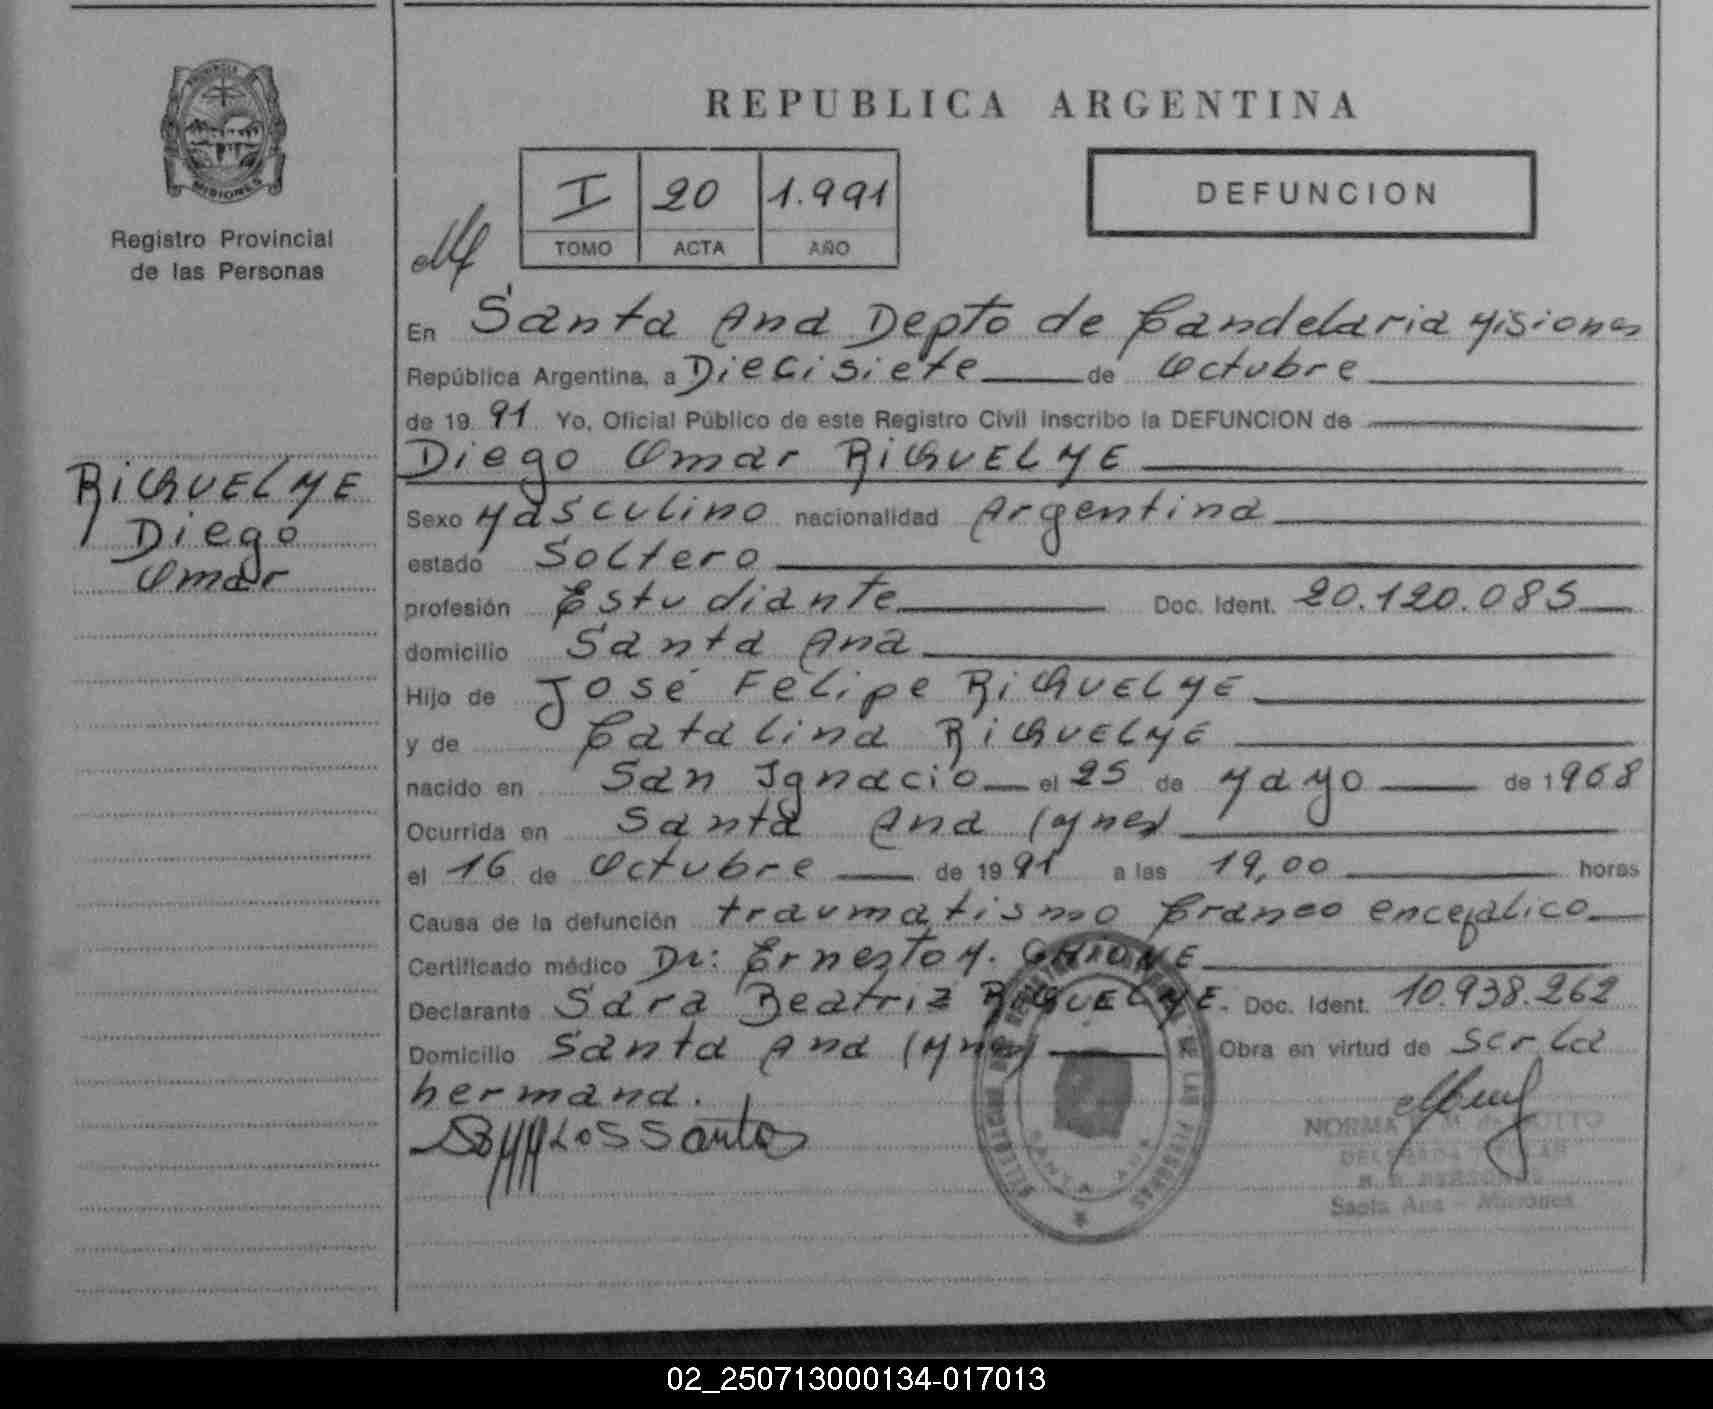 PROVINCIA DE
MISIONES
Registro Provincial
de las Personas
RiQUELME
Diego
Omar
REPUBLICA ARGENTINA
I 20 1.991
TOMO ACTA AÑO
DEFUNCION
En Santa Ana Depto de Candelaria Misiones
República Argentina, a Diecisiete de Octubre
de 19 91 Yo, Oficial Público de este Registro Civil inscribo la DEFUNCION de
Diego Omar RiQUELME
Sexo Masculino nacionalidad Argentina
estado Soltero
profesión Estudiante Doc. Ident. 20.120.085
domicilio Santa Ana
Hijo de José Felipe RiQUELME
y de Catalina RiQUELME
nacido en San Ignacio el 25 de Mayo de 1968
Ocurrida en Santa Ana (Mnes)
el 16 de Octubre de 19 91 a las 19,00 horas
Causa de la defunción traumatismo Craneo encefalico
Certificado médico Dr: Ernesto M.
Declarante Sara Beatriz RiQUELME. Doc. Ident. 10.938.262
Domicilio Santa Ana (Mnes) Obra en virtud de ser la
hermana.
SANTA ANA
NORMA
Santa Ana - Misiones
02_250713000134-017013